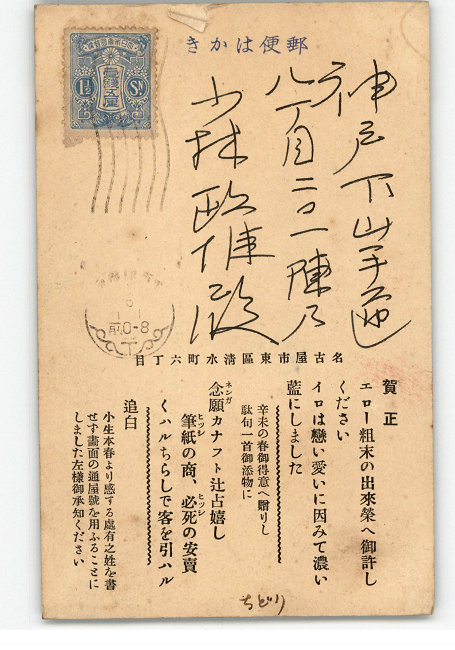 郵便はかき
大日本帝國郵便
壹錢五厘
1½ Sn.
神戸下山手通
八丁目二〇一
小林政
前0-8
名古屋市東區清水町六丁目
賀正
エロー粗末の出來榮へ御許し
ください
イロは戀い愛いに因みて濃い
藍にしました
辛未の春御得意へ贈りし
駄句一首御添物に
念願カナフト辻占嬉し
ネンガ
筆紙の商、必死の安賣
ヒツシ
ヒツシ
くハルちらしで客を引ハル
追白
小生本春より感する處有之姓を書
せす畫面の通屋號を用ふることに
しました左樣御承知ください
ちどり